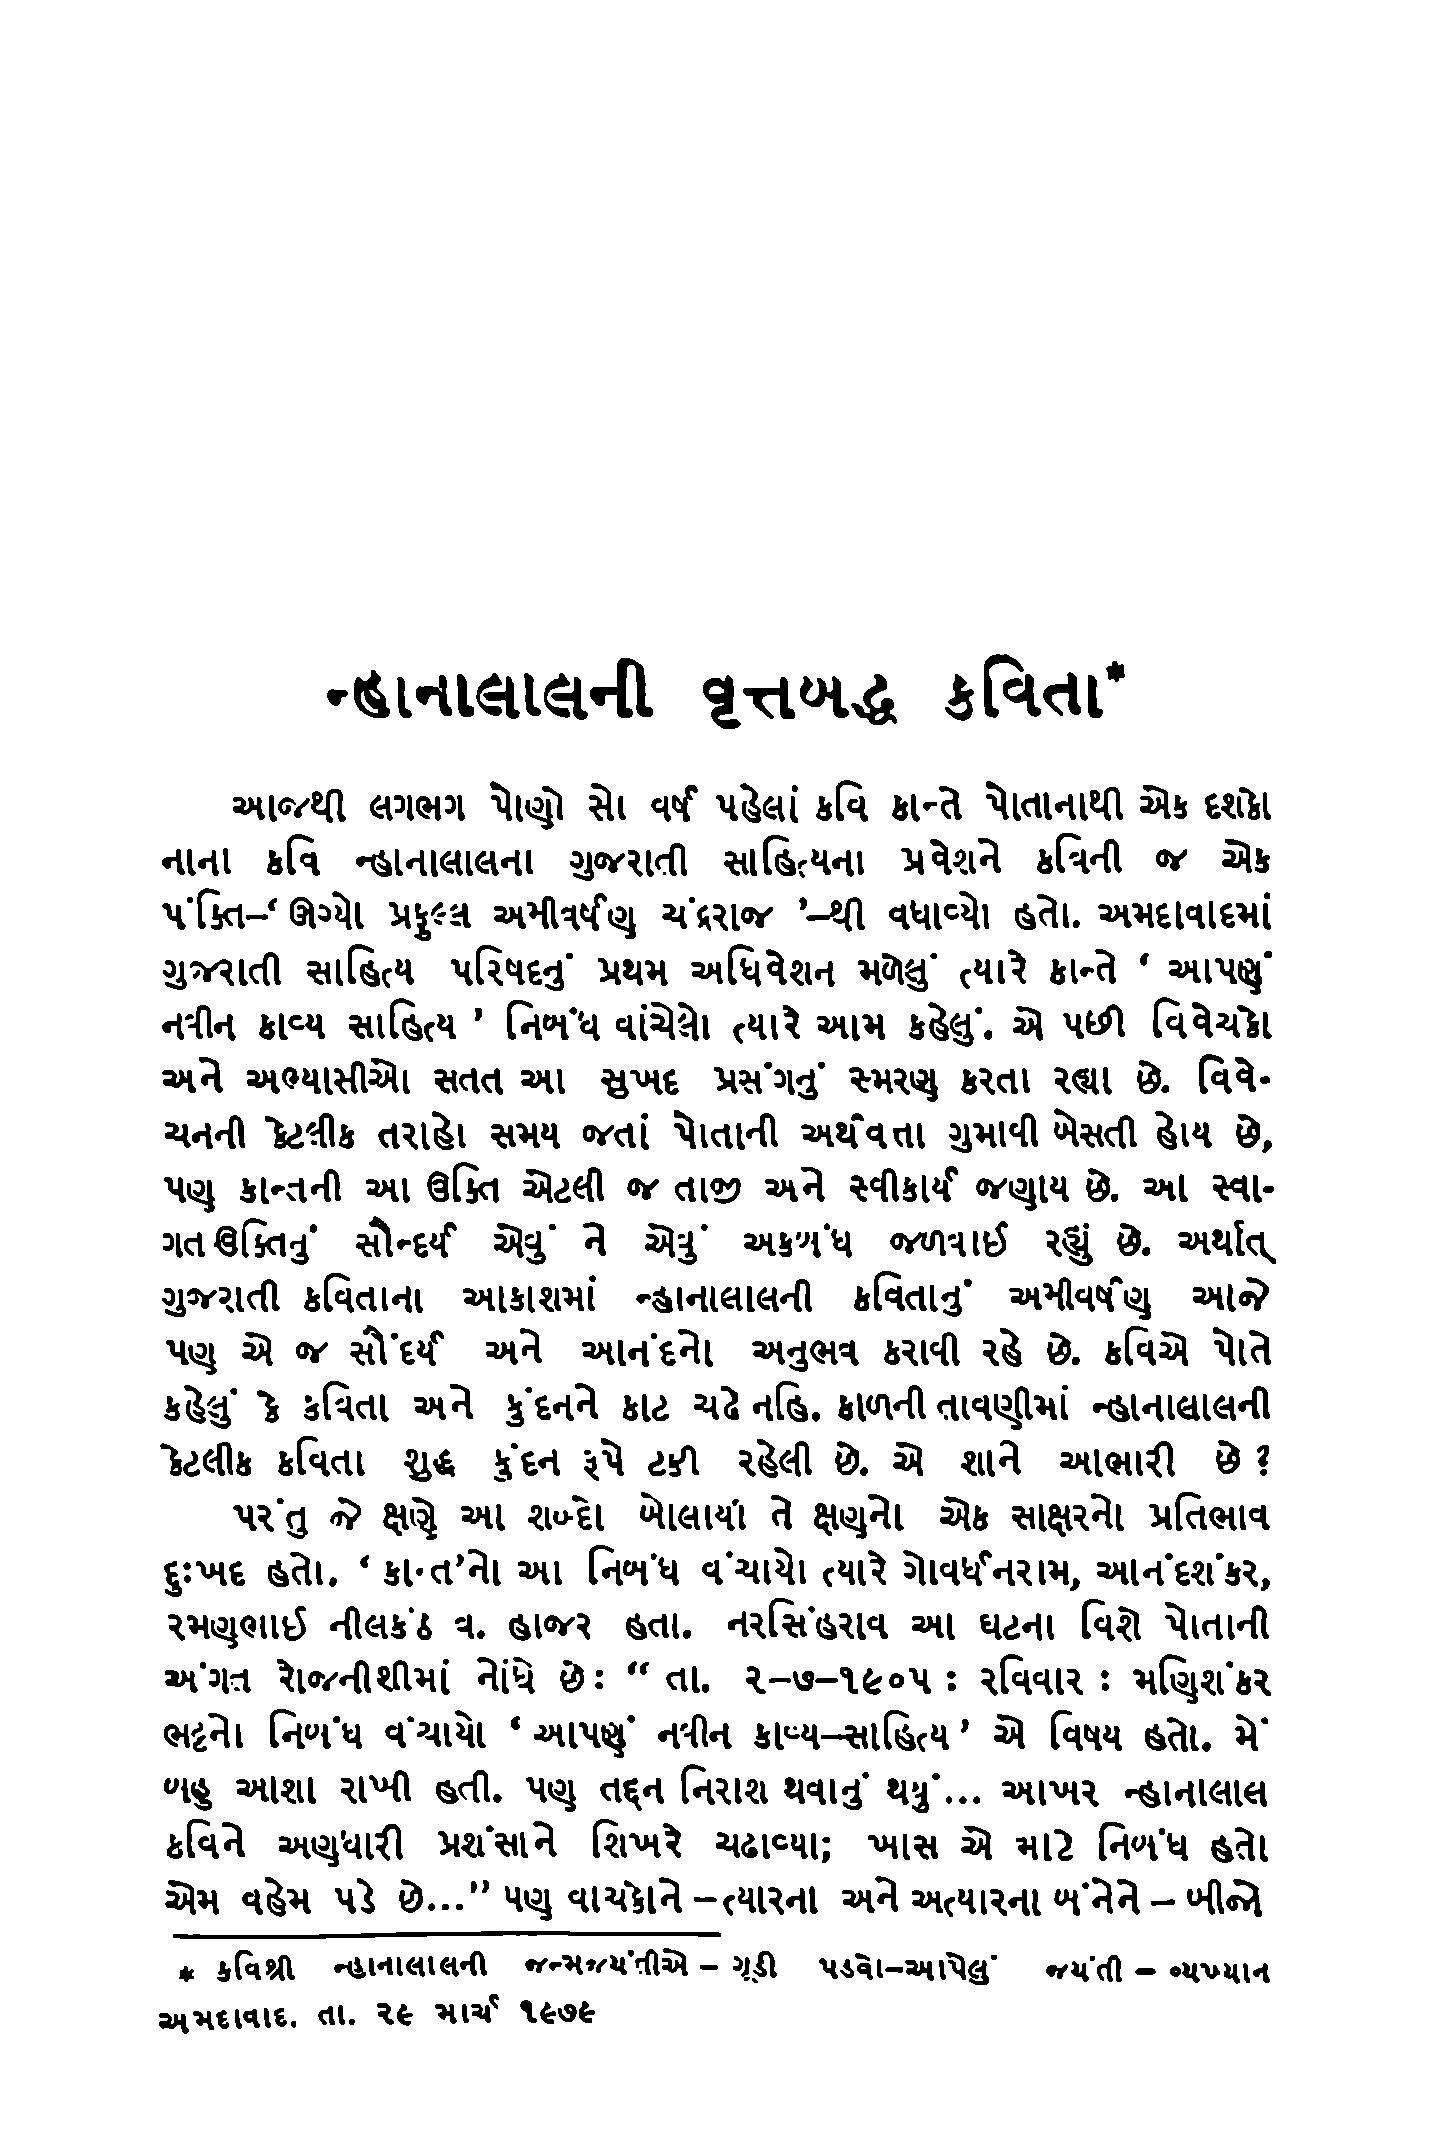 ન્હાનાલાલની વૃત્તબદ્ધ કવિતા*
આજથી લગભગ પોણો સો વર્ષ પહેલાં કવિ કાન્તે પોતાનાથી એક દશકો
નાના કવિ ન્હાનાલાલના ગુજરાતી સાહિત્યના પ્રવેશને કવિની જ એક
પંક્તિ–‘ ઊગ્યો પ્રફુલ્લ અમીવર્ષણ ચંદ્રરાજ ’–થી વધાવ્યો હતો. અમદાવાદમાં
ગુજરાતી સાહિત્ય પરિષદનું પ્રથમ અધિવેશન મળેલું ત્યારે કાન્તે ‘ આપણું
નવીન કાવ્ય સાહિત્ય ’ નિબંધ વાંચેલો ત્યારે આમ કહેલું. એ પછી વિવેચકો
અને અભ્યાસીઓ સતત આ સુખદ પ્રસંગનું સ્મરણ કરતા રહ્યા છે. વિવે-
ચનની કેટલીક તરાહો સમય જતાં પોતાની અર્થવત્તા ગુમાવી બેસતી હોય છે,
પણ કાન્તની આ ઉક્તિ એટલી જ તાજી અને સ્વીકાર્ય જણાય છે. આ સ્વા-
ગત ઉક્તિનું સૌન્દર્ય એવું ને એવું અકબંધ જળવાઈ રહ્યું છે. અર્થાત્
ગુજરાતી કવિતાના આકાશમાં ન્હાનાલાલની કવિતાનું અમીવર્ષણ આજે
પણ એ જ સૌંદર્ય અને આનંદનો અનુભવ કરાવી રહે છે. કવિએ પોતે
કહેલું કે કવિતા અને કુંદનને કાટ ચઢે નહિ. કાળની તાવણીમાં ન્હાનાલાલની
કેટલીક કવિતા શુદ્ધ કુંદન રૂપે ટકી રહેલી છે. એ શાને આભારી છે ?
પરંતુ જે ક્ષણે આ શબ્દો બોલાયાં તે ક્ષણનો એક સાક્ષરનો પ્રતિભાવ
દુઃખદ હતો. ‘ કાન્ત’નો આ નિબંધ વંચાયો ત્યારે ગોવર્ધનરામ, આનંદશંકર,
રમણભાઈ નીલકંઠ વ. હાજર હતા. નરસિંહરાવ આ ઘટના વિશે પોતાની
અંગત રોજનીશીમાં નોંધે છે: “ તા. ૨–૭–૧૯૦૫ : રવિવાર : મણિશંકર
ભટ્ટનો નિબંધ વંચાયો ‘ આપણું નવીન કાવ્ય–સાહિત્ય ’ એ વિષય હતો. મેં
બહુ આશા રાખી હતી. પણ તદ્દન નિરાશ થવાનું થયું... આખર ન્હાનાલાલ
કવિને અણધારી પ્રશંસાને શિખરે ચઢાવ્યા; ખાસ એ માટે નિબંધ હતો
એમ વહેમ પડે છે...” પણ વાચકોને –ત્યારના અને અત્યારના બંનેને – બીજો
* કવિશ્રી ન્હાનાલાલની જન્મજયંતીએ – ગૂડી પડવો–આપેલું જયંતી – વ્યખ્યાન
અમદાવાદ. તા. ૨૯ માર્ચ ૧૯૭૯